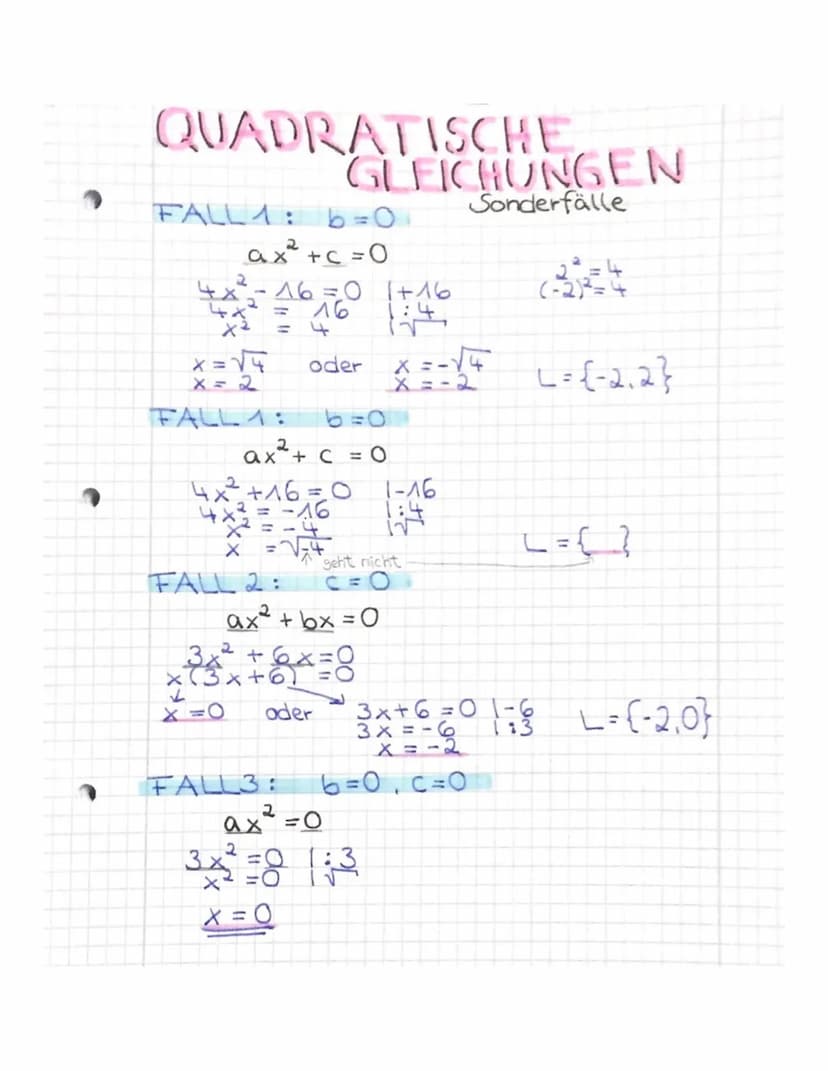 QUADRATISCHE
GLEICHUNGEN
Sonderfälle
FALL 1: b=0
ax² + c = 0
4x² - 16 = 0 | +16
4x² = 16 | : 4
x² = 4 | √
2² = 4
(-2)² = 4
x = √4 oder x = -√4
x = 2 x = -2
L = {-2, 2}
FALL 1: b=0
ax² + c = 0
4x² + 16 = 0 | -16
4x² = -16 | : 4
x² = -4 | √
x = √-4
↑ geht nicht
L = { }
FALL 2: c=0
ax² + bx = 0
3x² + 6x = 0
x(3x+6) = 0
x = 0 oder 3x+6 = 0 | -6
3x = -6 | : 3
x = -2
L = {-2,0}
FALL 3: b=0, c=0
ax² = 0
3x² = 0 | : 3
x² = 0 | √
x = 0